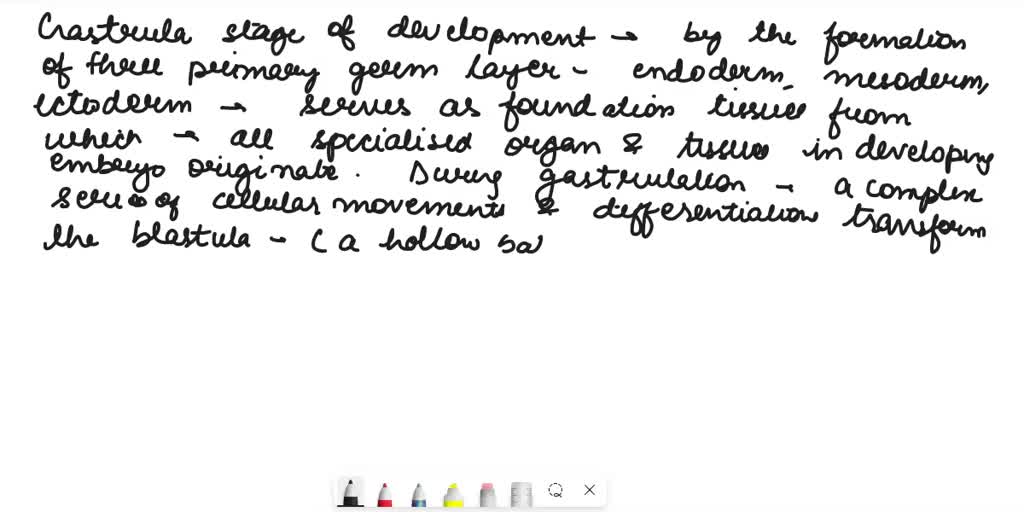 Gastrula stage of development → by the formation
of three primary germ layer - endoderm, mesoderm,
ectoderm → serves as foundation tissues from
which → all specialised organ & tissues in developing
embryo originate. During gastrulation - a complex
series of cellular movements & differentiation transform
the blastula - (a hollow ba